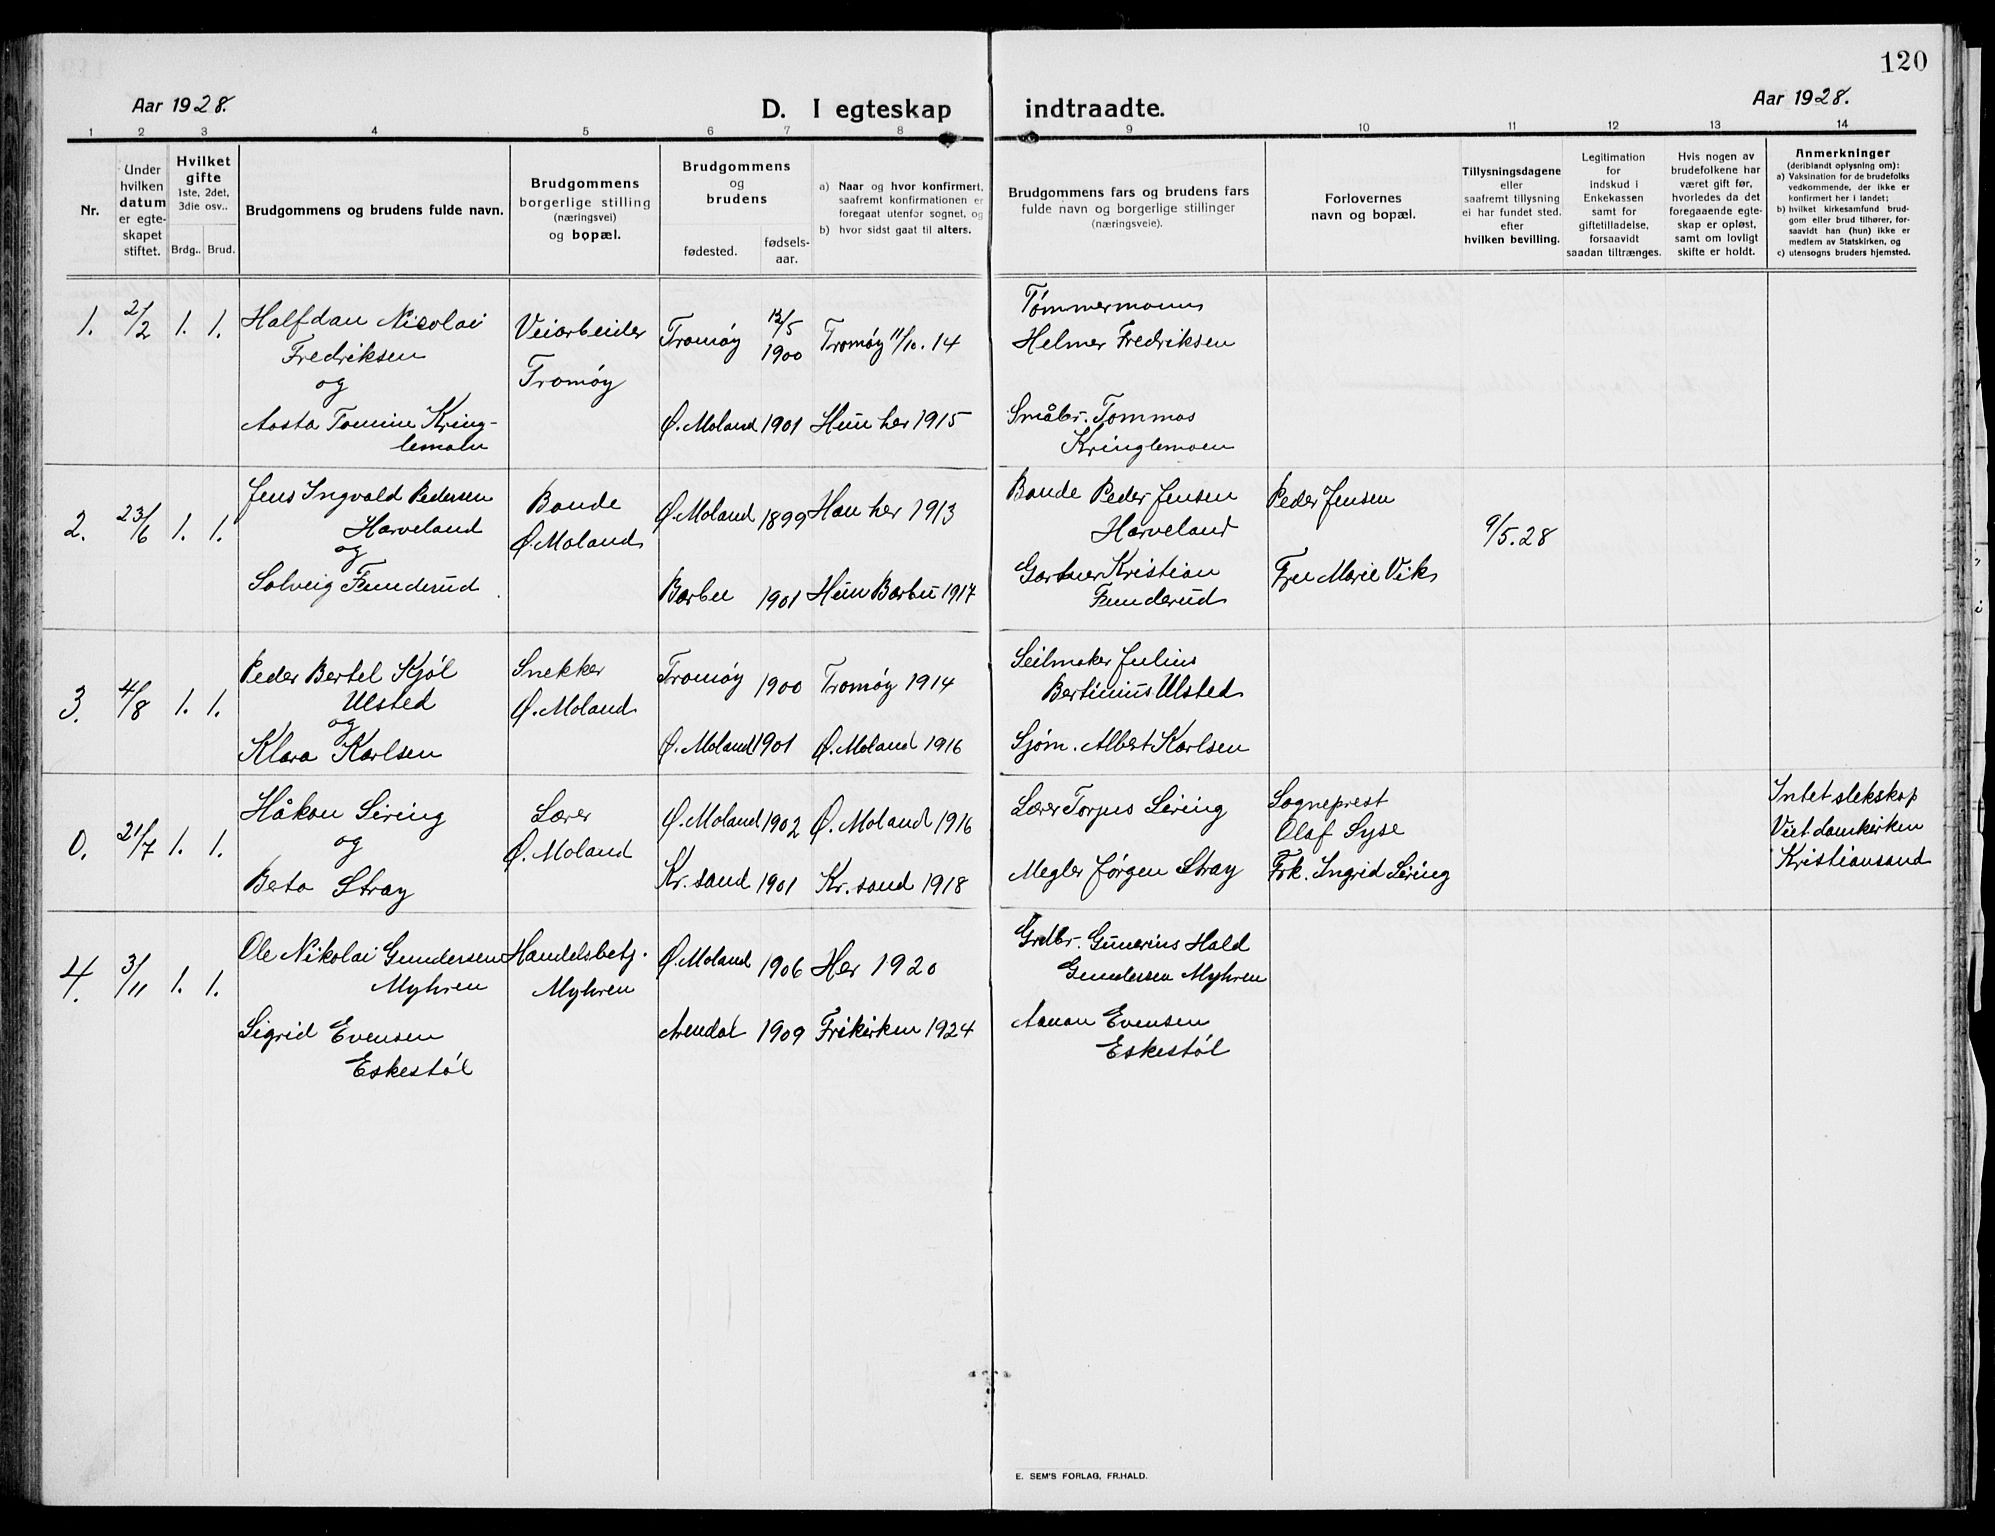 120
Aar 1928.
D. I egteskap indtraadte.
Aar 1928.
1 2 3 4 5 6 7 8 9 10 11 12 13 14
Nr.
Under
hvilken
datum
er egte-
skapet
stiftet.
Hvilket
gifte
1ste, 2det,
3die osv..
Brdg.. Brud.
Brudgommens og brudens fulde navn.
Brudgommens
borgerlige stilling
(næringsvei)
og bopæl.
Brudgommens
og
brudens
fødested.
fødsels-
aar.
a) Naar og hvor konfirmert,
saafremt konfirmationen er
foregaat utenfor sognet, og
b) hvor sidst gaat til alters.
Brudgommens fars og brudens fars
fulde navn og borgerlige stillinger
(næringsveie).
Forlovernes
navn og bopæl.
Tillysningsdagene
eller
saafremt tillysning
ei har fundet sted.
efter
hvilken bevilling.
Legitimation
for
indskud i
Enkekassen
samt for
giftetilladelse,
forsaavidt
saadan tiltrænges.
Hvis nogen av
brudefolkene har
været gift før,
hvorledes da det
foregaaende egte-
skap er opløst,
samt om lovligt
skifte er holdt.
Anmerkninger
(deriblandt oplysning om):
a) Vaksination for de brudefolks
vedkommende, der ikke er
konfirmert her i landet;
b) hvilket kirkesamfund brud-
gom eller brud tilhører, for-
saavidt han (hun) ikke er
medlem av Statskirken, og
c) utensogns bruders hjemsted.
1. 2/2 1. 1.
Halfdan Nicolai
Fredriksen
og
Aasta Tomine Kring-
lemoen
Veiarbeider
Tromøy
Tromøy 12/5 1900 Tromøy 11/10. 14
Ø. Moland 1901 Hun her 1915
Tømmermann
Helmer Fredriksen
Småbr. Tommas
Kringlemoen
2. 23/6 1. 1.
Jens Ingvald Pedersen
Harveland
og
Solveig Funderud
Bonde
Ø. Moland
Ø. Moland 1899 Han her 1913
Barbu 1901 Hun Barbu 1917
Bonde Peder Jensen
Harveland
Gartner Kristian
Funderud
Peder Jensen
Fru Marie Vik
9/5. 28
3. 4/8 1. 1.
Peder Bertel Kjøl
Ulsted
og
Klara Karlsen
Snekker
Ø. Moland
Tromøy 1900 Tromøy 1914
Ø. Moland 1901 Ø. Moland 1916
Seilmaker Julius
Bertinius Ulsted
Sjøm. Albert Karlsen
0. 21/7 1. 1.
Håkon Siring
og
Beta Stray
Lærer
Ø. Moland
Ø. Moland 1902 Ø. Moland 1916
Kr. sand 1901 Kr. sand 1918
Lærer Torjus Siring
Megler Jørgen Stray
Sogneprest
Olaf Syse
Frk. Ingrid Siring
Intet slekskap
Viet domkirken
Kristiansand
4. 3/11 1. 1.
Ole Nikolai Gundersen
Myhren
Sigrid Evensen
Eskestøl
Handelsbetj.
Myhren
Ø. Moland 1906 Her 1920
Arendal 1909 Frikirken 1924
Grdbr. Gunerius Hald
Gundersen Myhren
Aanon Evensen
Eskestøl
E. SEM'S FORLAG, FR.HALD.